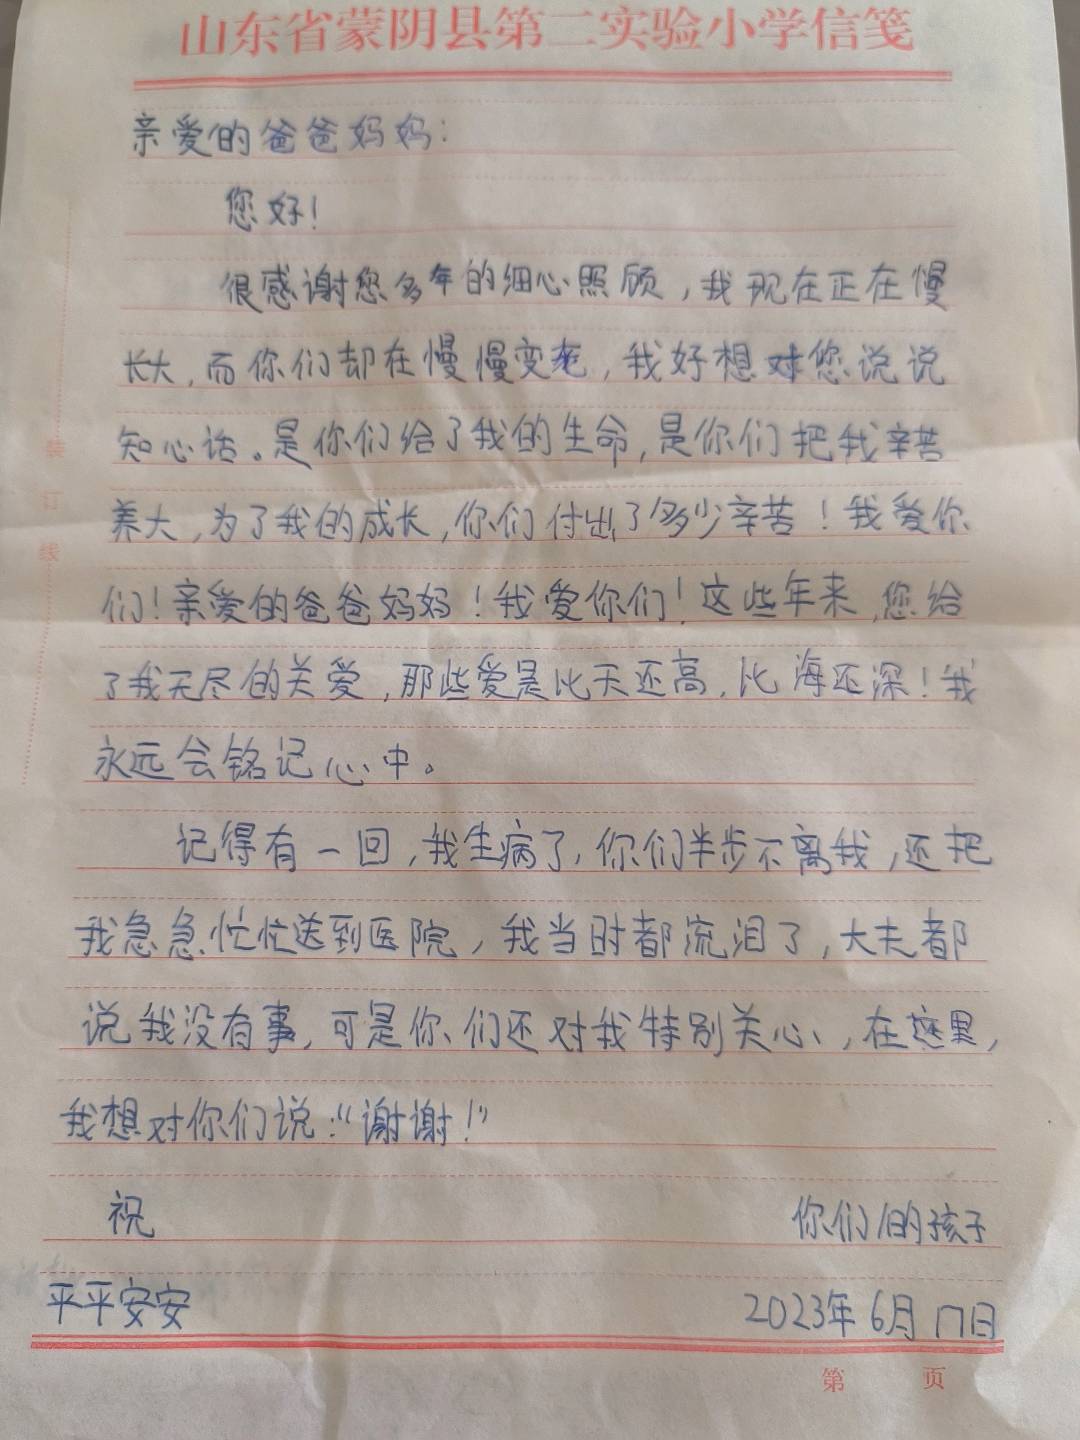 山东省蒙阴县第二实验小学信笺
亲爱的爸爸妈妈:
您好!
很感谢您多年的细心照顾,我现在正在慢
长大,而你们却在慢慢变老,我好想对您说说
知心话。是你们给了我的生命,是你们把我辛苦
养大,为了我的成长,你们付出了多少辛苦!我爱你
们!亲爱的爸爸妈妈!我爱你们!这些年来,您给
了我无尽的关爱,那些爱是比天还高,比海还深!我
永远会铭记心中。
记得有一回,我生病了,你们半步不离我,还把
我急急忙忙送到医院,我当时都流泪了,大夫都
说我没有事,可是你们还对我特别关心,在这里,
我想对你们说:“谢谢!”
祝
你们的孩子
平平安安
2023年6月17日
第 页
装订线